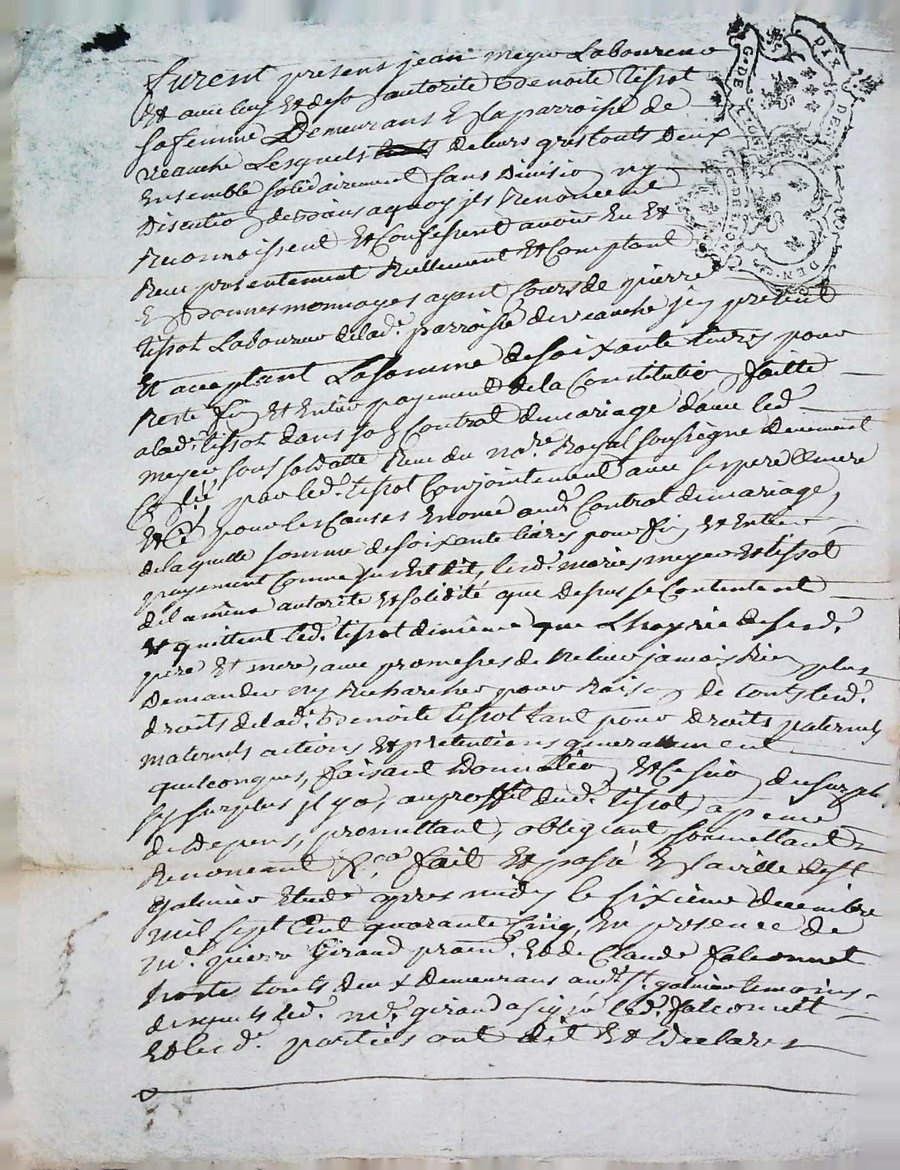 furent presens jean meyer Laboureur
Et avec luy Et de son autorité Benoite tissot
sa femme Demeurans En la parroisse de
veauche Lesquels de leurs gres touts Deux
Ensemble solidairement sans Division ny
Discution de dans a quoy ils Renoncent
Reconnoissent Et Confessent avoir Eu Et
Receu presentement Reellement Et Comptant
En bonnes monnoyes ayant Cours de pierre
tissot Laboureur de lad.e parroisse de veauche jcy present
Et acceptant La somme de soixante livres pour
Reste fin Et Entier payement de la Constitution faitte
a lad.e tissot dans son Contrat de mariage d'avec led.
meyer sous sa datte Receu du no.re Royal soussigné Deuement
par led. tissot Conjointement avec ses pere Et mere
Et Ce pour les Causes Enoncé aud. Contrat de mariage,
de laquelle somme de soixante livres pour fin Et Entier
payement Comme sus Est dit, lesd. mariés meyer Et tissot
de la meme autorité Et solidité que dessus se Contentent
Et quittent led. tissot de meme que L'hoyrie de sesd.
pere Et mere, avec promesses de ne leur jamais Rien plus
Demander ny Rechercher pour Raison de touts lesd.
droits de lad.e Benoite tissot tant pour droits paternels
maternels actions Et pretentions generallement
quelconques, faisant Donnation Et Cession du surplus
sy surplus il y a, au proffit dud. tissot, a peine
de Depens, promettant, obligeant, soumettant
Renonceant &.ca fait Et passé En la ville de S.t
galmier Etude apres midy le sixieme decembre
mil sept Cent quarante Cinq, En presence de
m.e pierre Girard Et de Claude falconnet
hoste touts deux demeurans aud. S.t galmier temoins
desquels led. m.e girard a signé led. falconnet
Et lesd. parties ont dit Et Declaré
G.ᵈᵉ DE LYON
DIX DENIERS
G.DE LYON
DEN.